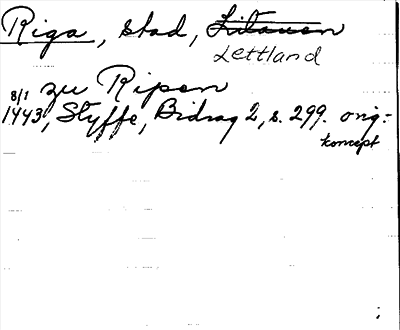 Riga, stad, Litauen
Lettland
zu Ripen
8/1
1443, Styffe, Bidrag 2, s. 299. orig:-
koncept